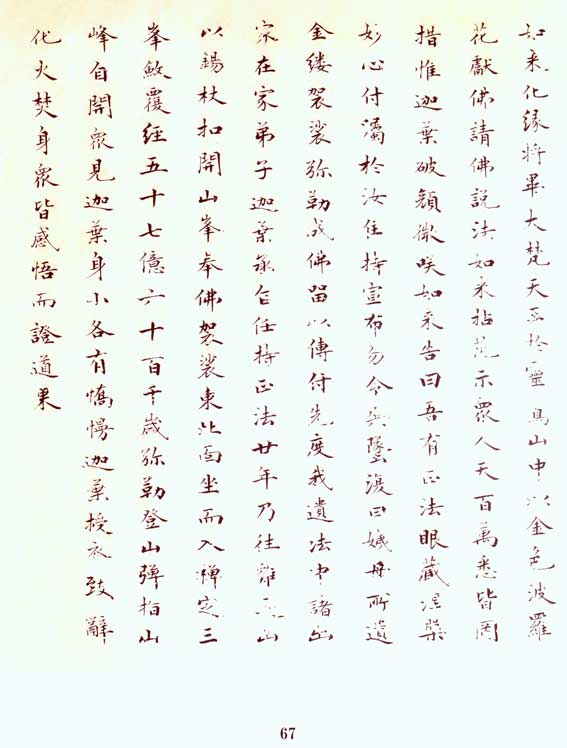 如来化缘将畢大梵天王於靈鷲山中以金色波羅
花獻佛請佛説法如来拈花示眾人天百萬悉皆罔
措惟迦葉破顔微咲如来告曰吾有正法眼藏涅槃
妙心付囑於汝任持宣布勿令墜復曰姨母所遺
金縷袈裟弥勒成佛留以傳付先度我遺法中諸出
家在家弟子迦葉承命任持正法廿年乃往雞足山
以錫杖扣開山峯奉佛袈裟東北面坐而入禪定三
峯斂覆經五十七億六十百千歲弥勒登山彈指山
峰自開眾見迦葉身小各有憍慢迦葉授衣致辭
化火焚身眾皆感悟而證道果
67